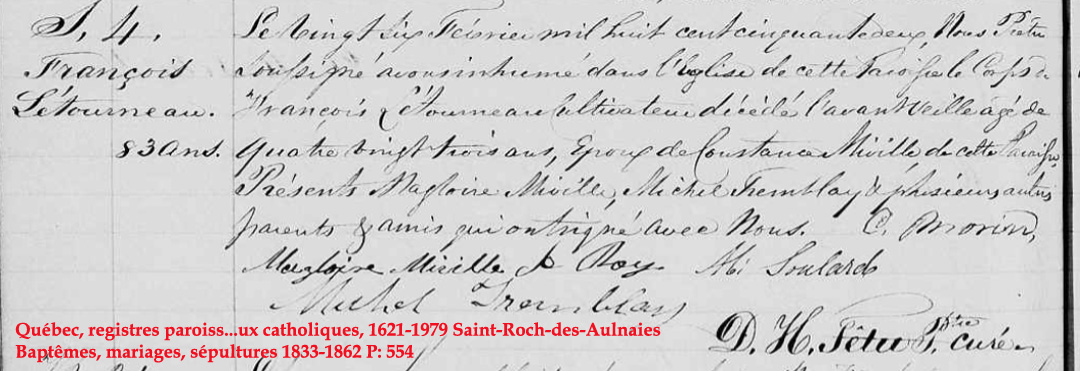 S. 4.
François
Létourneau.
83 ans.
Le vingt six Février mil huit cent cinquante deux, Nous Prêtre
soussigné avons inhumé dans l'Eglise de cette Paroisse le Corps de
François Létourneau Cultivateur décédé l'avant veille agé de
quatre vingt trois ans, Epoux de Constance Miville de cette Paroisse,
Présents Magloire Miville, Michel Tremblay & plusieurs autres
parents & amis qui ont signé avec Nous. C. Morin,
Magloire Miville Roy Soulard
Michel Tremblay
D. H. Têtu Ptre curé.
Québec, registres paroiss...ux catholiques, 1621-1979 Saint-Roch-des-Aulnaies
Baptêmes, mariages, sépultures 1833-1862 P: 554